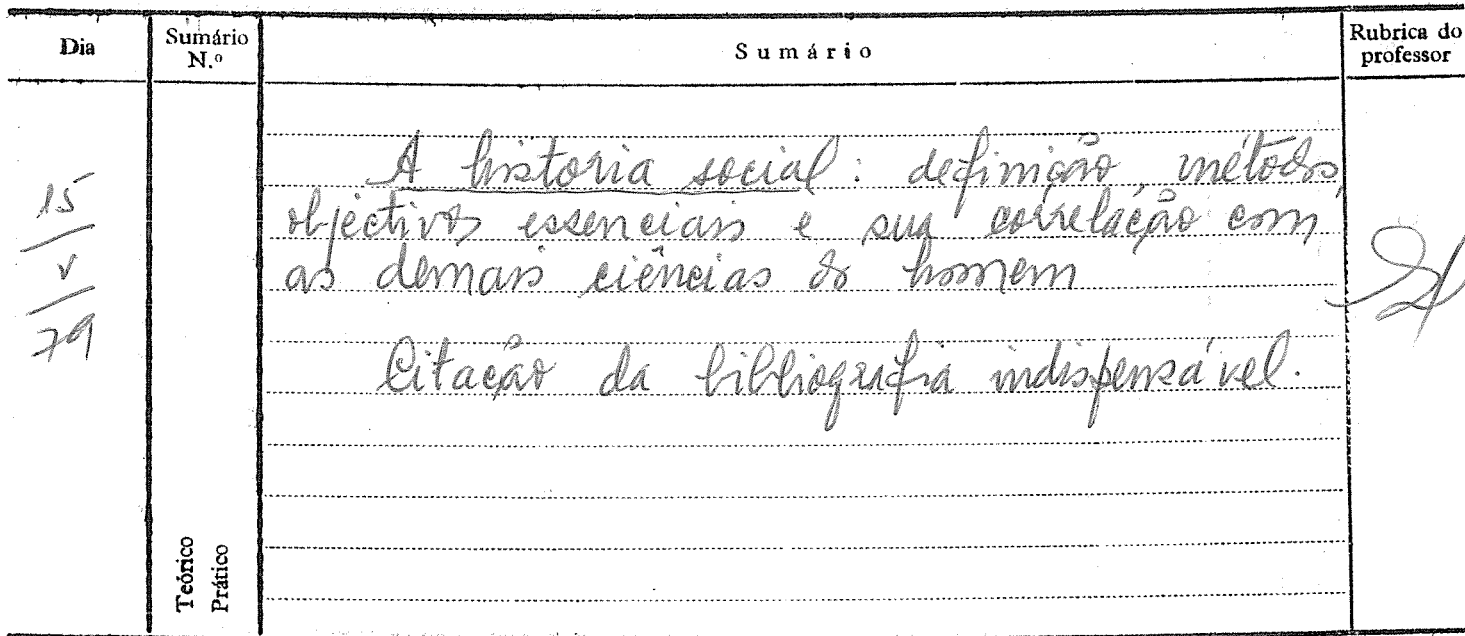 Dia
Sumário N.º
Sumário
Rubrica do professor
15
V
79
A historia social: definição, métodos,
objectivos essenciais e sua correlação com
as demais ciências do homem
Citação da bibliografia indispensável.
Teórico
Prático